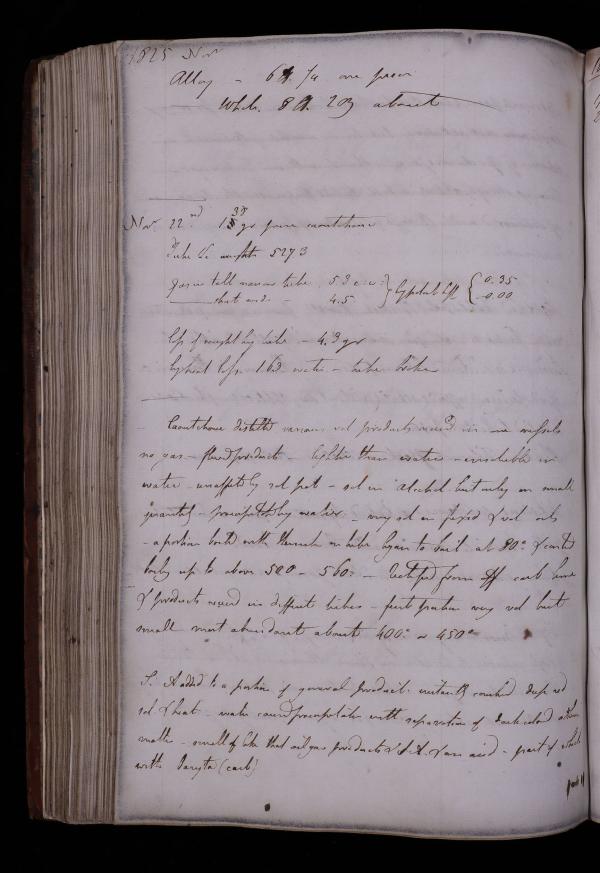 1825 Nov
Alloy - 6 1/4 one piece
Whole. 8 203 about
Nov. 22nd 13 gr pure caoutchouc
Tube &c weight 5273
gas in tall narrow tube 5.3 c. i.
that ends - 4.5 } left { 0.35 -0.00
loss of weight by tube - 4.3 gr
loss 1.63 water - tube broken
Caoutchouc distilled various vol products recd in one vessel
no gas - fluid product - lighter than water - insoluble in
water - unaffected by sol pot - sol in Alcohol but only in small
quantity - precipitated by water - very sol in fixed & vol oils
- a portion boiled with therm in tube began to boil at 80° & went
up to above 500 - 560° - Rectified from carb lime
& products recd in different tubes - first portion very vol but
small most abundant about 400° or 450°
S. A added to a portion of general product: instantly caused deep red
col & heat - water caused precipitation with separation of dark colored
matter - smell of like that oil gas products & S A & an acid - part of which
with Baryta (carb)